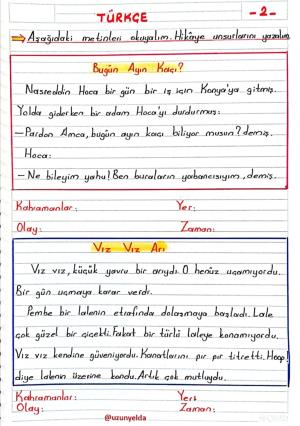 TÜRKÇE
-2-
Aşağıdaki metinleri okuyalım. Hikâye unsurlarını yazalım.
Bugün Ayın Kaçı?
Nasreddin Hoca bir gün bir iş için Konya'ya gitmiş.
Yolda giderken bir adam Hoca'yı durdurmuş:
-Pardon Amca, bugün ayın kaçı biliyor musun? demiş.
Hoca:
-Ne bileyim yahu! Ben buraların yabancısıyım, demiş.
Kahramanlar: Yer:
Olay: Zaman:
Vız Vız Arı
Vız vız, küçük yavru bir arıydı. O henüz uçamıyordu.
Bir gün uçmaya karar verdi.
Pembe bir lalenin etrafında dolaşmaya başladı. Lale
çok güzel bir çiçekti. Fakat bir türlü laleye konamıyordu.
Vız vız kendine güveniyordu. Kanatlarını pır pır titretti. Hoop!
diye lalenin üzerine kondu. Artık çok mutluydu.
Kahramanlar: Yer:
Olay: Zaman:
@uzunyelda